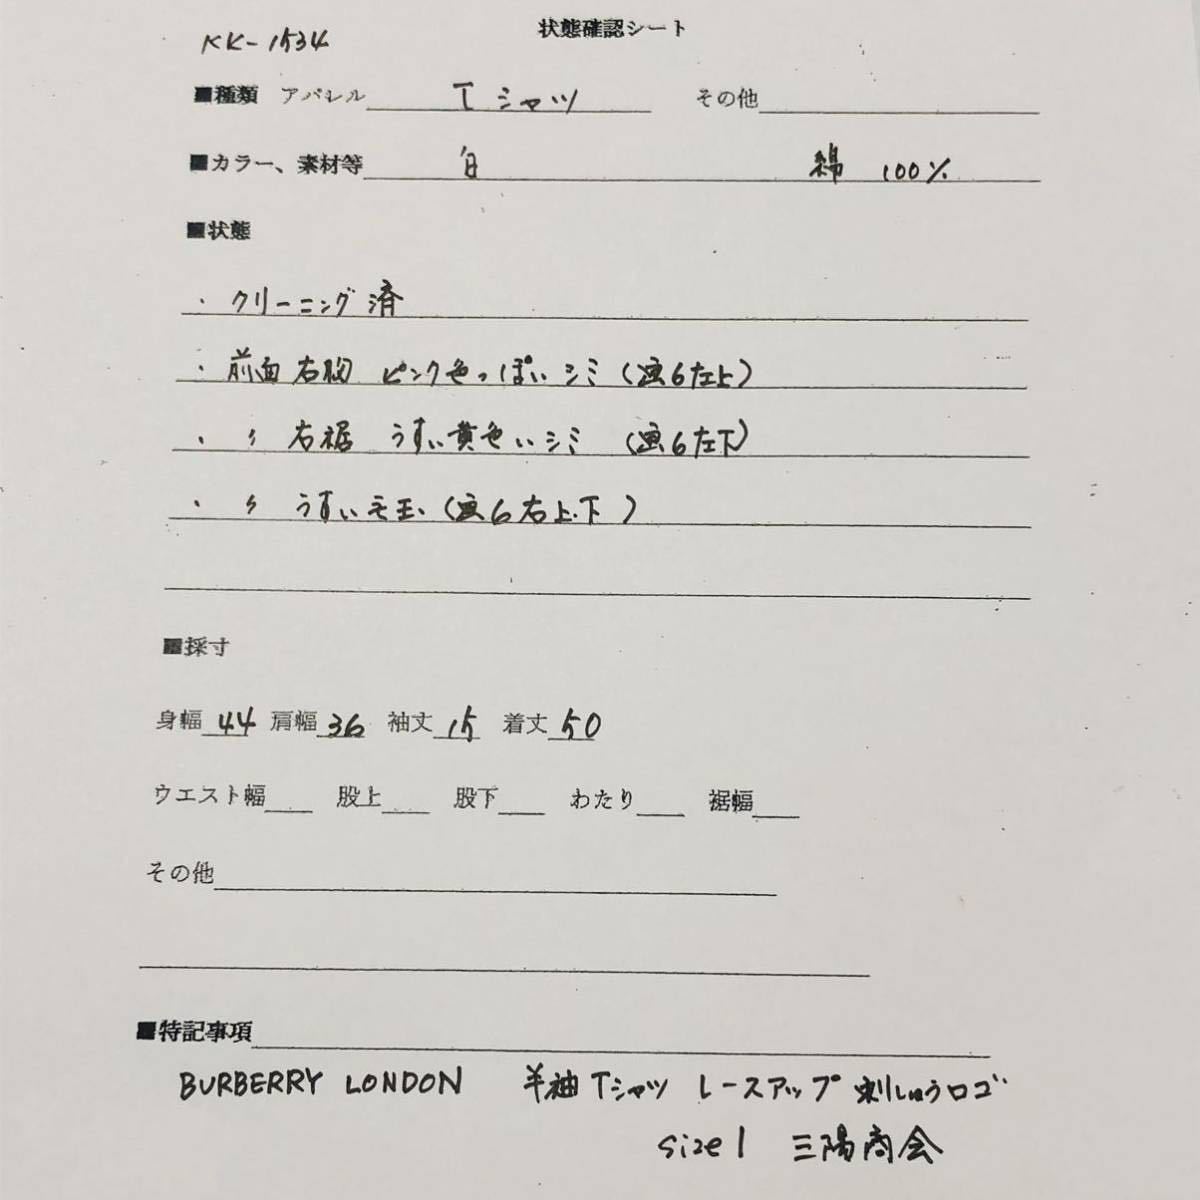 状態確認シート
KK-1534
■種類 アパレル Tシャツ その他
■カラー、素材等 白 綿 100%
■状態
・クリーニング済
・前面 右胸 ピンク色っぽいシミ(画6左上)
・〃 右裾 うすい黄色いシミ (画6左下)
・〃 うすい毛玉(画6右上.下)
■採寸
身幅 44 肩幅 36 袖丈 15 着丈 50
ウエスト幅 股上 股下 わたり 裾幅
その他
■特記事項
BURBERRY LONDON 半袖Tシャツ レースアップ 刺しゅうロゴ
size1 三陽商会